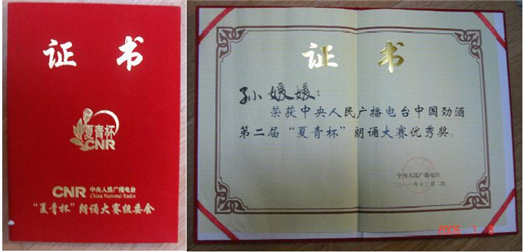 证 书
夏青杯
CNR
CNR 中央人民广播电台
China National Radio
“夏青杯”朗诵大赛组委会
证 书
孙媛媛：
荣获中央人民广播电台中国劲酒
第二届“夏青杯”朗诵大赛优秀奖。
中央人民广播电台